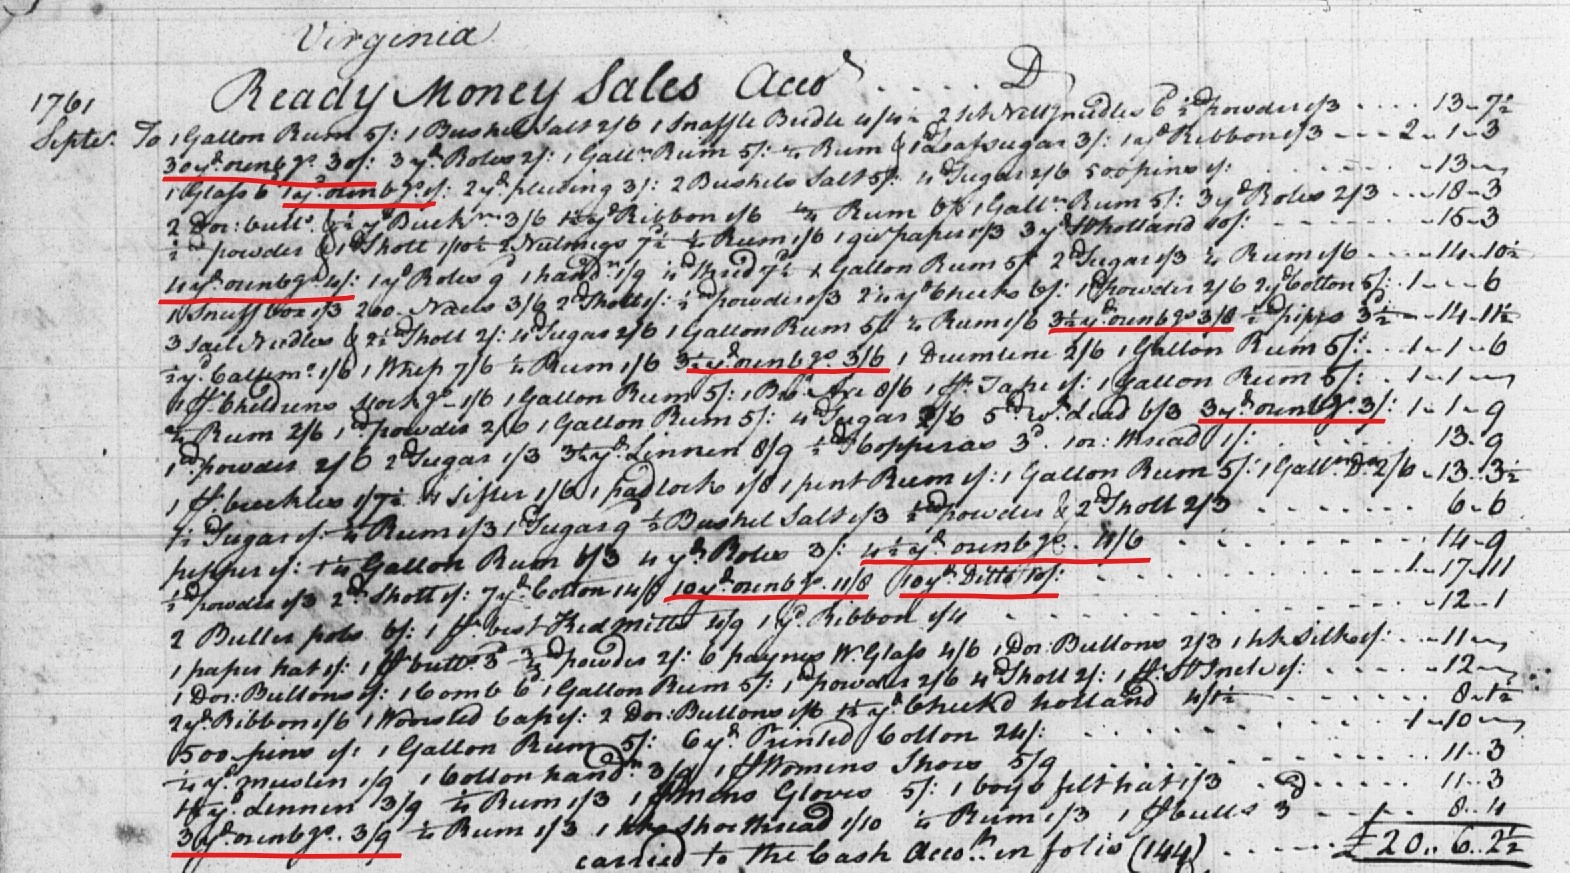 Virginia
Ready Money Sales Acco.t . . . . . D.r
1761
Septr. To 1 Gallon Rum 5/: 1 Bushel Salt 2/6 1 Snaffle Bridle 4/4½ 2 Needles 6 ½ powder 1/3 . . . . 13-7½
30 yd. ozenbgs. 30/: 3 yds. Roles 2/: 1 Galln. Rum 5/: Rum & sugar 3/: 1 yd. Ribbon 1/3 - - - 2-1-3
1 Glass 6 1 yd. ozenbgs. 1/: 2 yd. 3/: 2 Bushels Salt 5/: 4 Sugar 2/6 500 pins 1/: 13-
2 Doz: butts. yd. Buckm. 3/6 yd. Ribbon 1/6 Rum 1 Galln. Rum 5/: 3 yd. Roles 2/3 18-3
½ powder & 1 Shott 1/10½ 2 Nutmegs 7½ ¼ Rum 1/6 1 paper 1/3 3 yd. Holland 10/: 15-3
4 yd. ozenbgs. 4/: 1 yd. Roles 9d 1 hand. 1/9 7½ 1 Gallon Rum 5/: 2 Sugar 1/3 ¼ Rum 1/6 - 14-10½
1 Snuff box 1/3 200 Nails 3/6 2 Shott 1/: ½ powder 1/3 yd. Checks 6/: 1 powder 2/6 2 yd Cotton 5/: 1--6
3 Sail Needles & 2½ Shott 2/: 4 Sugar 2/6 1 Gallon Rum 5/: ¼ Rum 1/6 3½ yd. ozenbgs. 3/6 ½ 3½ - 14-11½
½ yd. 1/6 1 Whip 7/6 ¼ Rum 1/6 3½ yd. ozenbgs. 3/6 1 Drumline 2/6 1 Gallon Rum 5/: 1-1-6
1 pr. Childrens 1/6 1 Gallon Rum 5/: 1 Axe 8/6 1 pc. Tape 1/: 1 Gallon Rum 5/: 1-1-
Rum 2/6 1 powder 2/6 1 Gallon Rum 5/: 4 Sugar 2/6 5 Wt. Lead 6/3 3 yd. ozenbgs. 3/: 1-1-9
1 powder 2/6 2 Sugar 1/3 yd. Linnen 8/9 ½ Copperas 3d. 1 oz: thread 1/: 13-9
1 pr. buckles 1/7½ 1 Sifter 1/6 1 padlock 1/8 1 pint Rum 1/: 1 Gallon Rum 5/: 1 Galln. Do. 2/6 - 13-3½
Sugar 1/: ¼ Rum 1/3 1 Sugar 9d ½ Bushel Salt 1/3 ½ powder & 2 Shott 2/3 6-6
pepper 1/: 1¼ Gallon Rum 6/3 4 yds. Roles 3/: 4½ yd. ozenbgs. 4/6 14-9
½ powder 1/3 2 Shott 1/: 7 yd. Cotton 14/: 10 yd. ozenbgs. 11/8 10 yd. Ditto 10/: 1-17-11
2 Butter pots 6/: 1 pr. best Kid Mitts 4/9 1 yd. Ribbon 1/4 12-1
1 paper hat 1/: 1 butts. 3d powder 2/: 6 paynes W. Glass 4/6 1 Doz: Buttons 2/3 1 hk Silk 1/: 11-
1 Doz: Buttons 1/: 1 Comb 6d 1 Gallon Rum 5/: 1 powder 2/6 4 Shott 2/: 1/: 12-
2 yd. Ribbon 1/6 1 Worsted Cap 1/: 2 Doz: Buttons 1/6 yd. Check'd holland 4/1½ 8-1½
500 pins 1/: 1 Gallon Rum 5/: 6 yd. Printed Cotton 24/: 1-10-
¼ yd. Muslin 1/9 1 Cotton hand. 3/9 1 pr. Womens Shoes 5/9 11-3
yd. Linnen 3/9 ¼ Rum 1/3 1 pr. Mens Gloves 5/: 1 boys felt hat 1/3 11-3
3 yd. ozenbgs. 3/9 ¼ Rum 1/3 1 Shoethread 1/10 ¼ Rum 1/3 1 butts 3d 8-4
carried to the Cash Acco.tt in folio (144) £20..6..2½